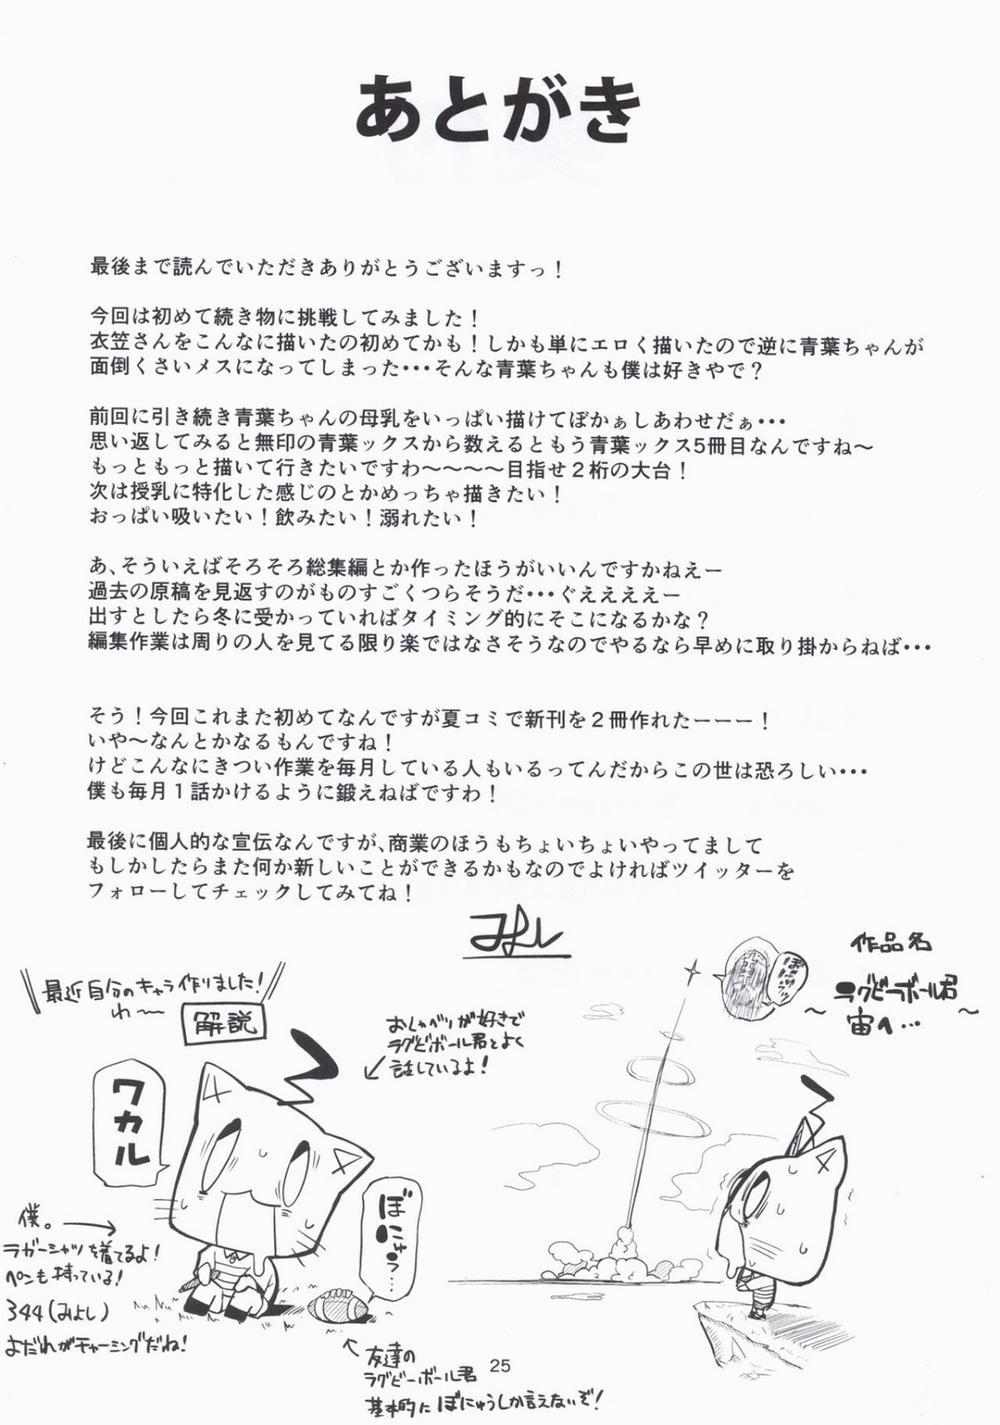 あとがき
最後まで読んでいただきありがとうございますっ！
今回は初めて続き物に挑戦してみました！
衣笠さんをこんなに描いたの初めてかも！しかも単にエロく描いたので逆に青葉ちゃんが
面倒くさいメスになってしまった・・・そんな青葉ちゃんも僕は好きやで？
前回に引き続き青葉ちゃんの母乳をいっぱい描けてぼかぁしあわせだぁ・・・
思い返してみると無印の青葉ックスから数えるともう青葉ックス5冊目なんですね～
もっともっと描いて行きたいですわ～～～～目指せ２桁の大台！
次は授乳に特化した感じのとかめっちゃ描きたい！
おっぱい吸いたい！飲みたい！溺れたい！
あ、そういえばそろそろ総集編とか作ったほうがいいんですかねえー
過去の原稿を見返すのがものすごくつらそうだ・・・ぐえええええー
出すとしたら冬に受かっていればタイミング的にそこになるかな？
編集作業は周りの人を見てる限り楽ではなさそうなのでやるなら早めに取り掛からねば・・・
そう！今回これまた初めてなんですが夏コミで新刊を２冊作れたーーー！
いや～なんとかなるもんですね！
けどこんなにきつい作業を毎月している人もいるってんだからこの世は恐ろしい・・・
僕も毎月１話かけるように鍛えねばですわ！
最後に個人的な宣伝なんですが、商業のほうもちょいちょいやってまして
もしかしたらまた何か新しいことができるかもなのでよければツイッターを
フォローしてチェックしてみてね！
みよし
最近自分のキャラ作りました！
わ～
解説
ワカル
おしゃべりが好きで
ラグビーボール君とよく
話しているよ！
ぼにゅう？…
僕。
ラガーシャツを着てるよ！
ペンも持っている！
344（みよし）
よだれがチャーミングだね！
友達の
ラグビーボール君
基本的にぼにゅうしか言えないぞ！
作品名
～ラグビーボール君
宙へ…～
25